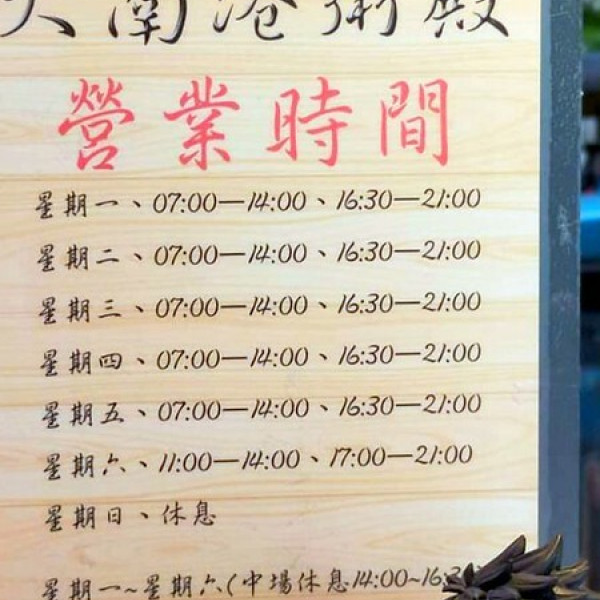 營業時間
星期一、07:00—14:00、16:30—21:00
星期二、07:00—14:00、16:30—21:00
星期三、07:00—14:00、16:30—21:00
星期四、07:00—14:00、16:30—21:00
星期五、07:00—14:00、16:30—21:00
星期六、11:00—14:00、17:00—21:00
星期日、休息
星期一~星期六(中場休息14:00~16:3